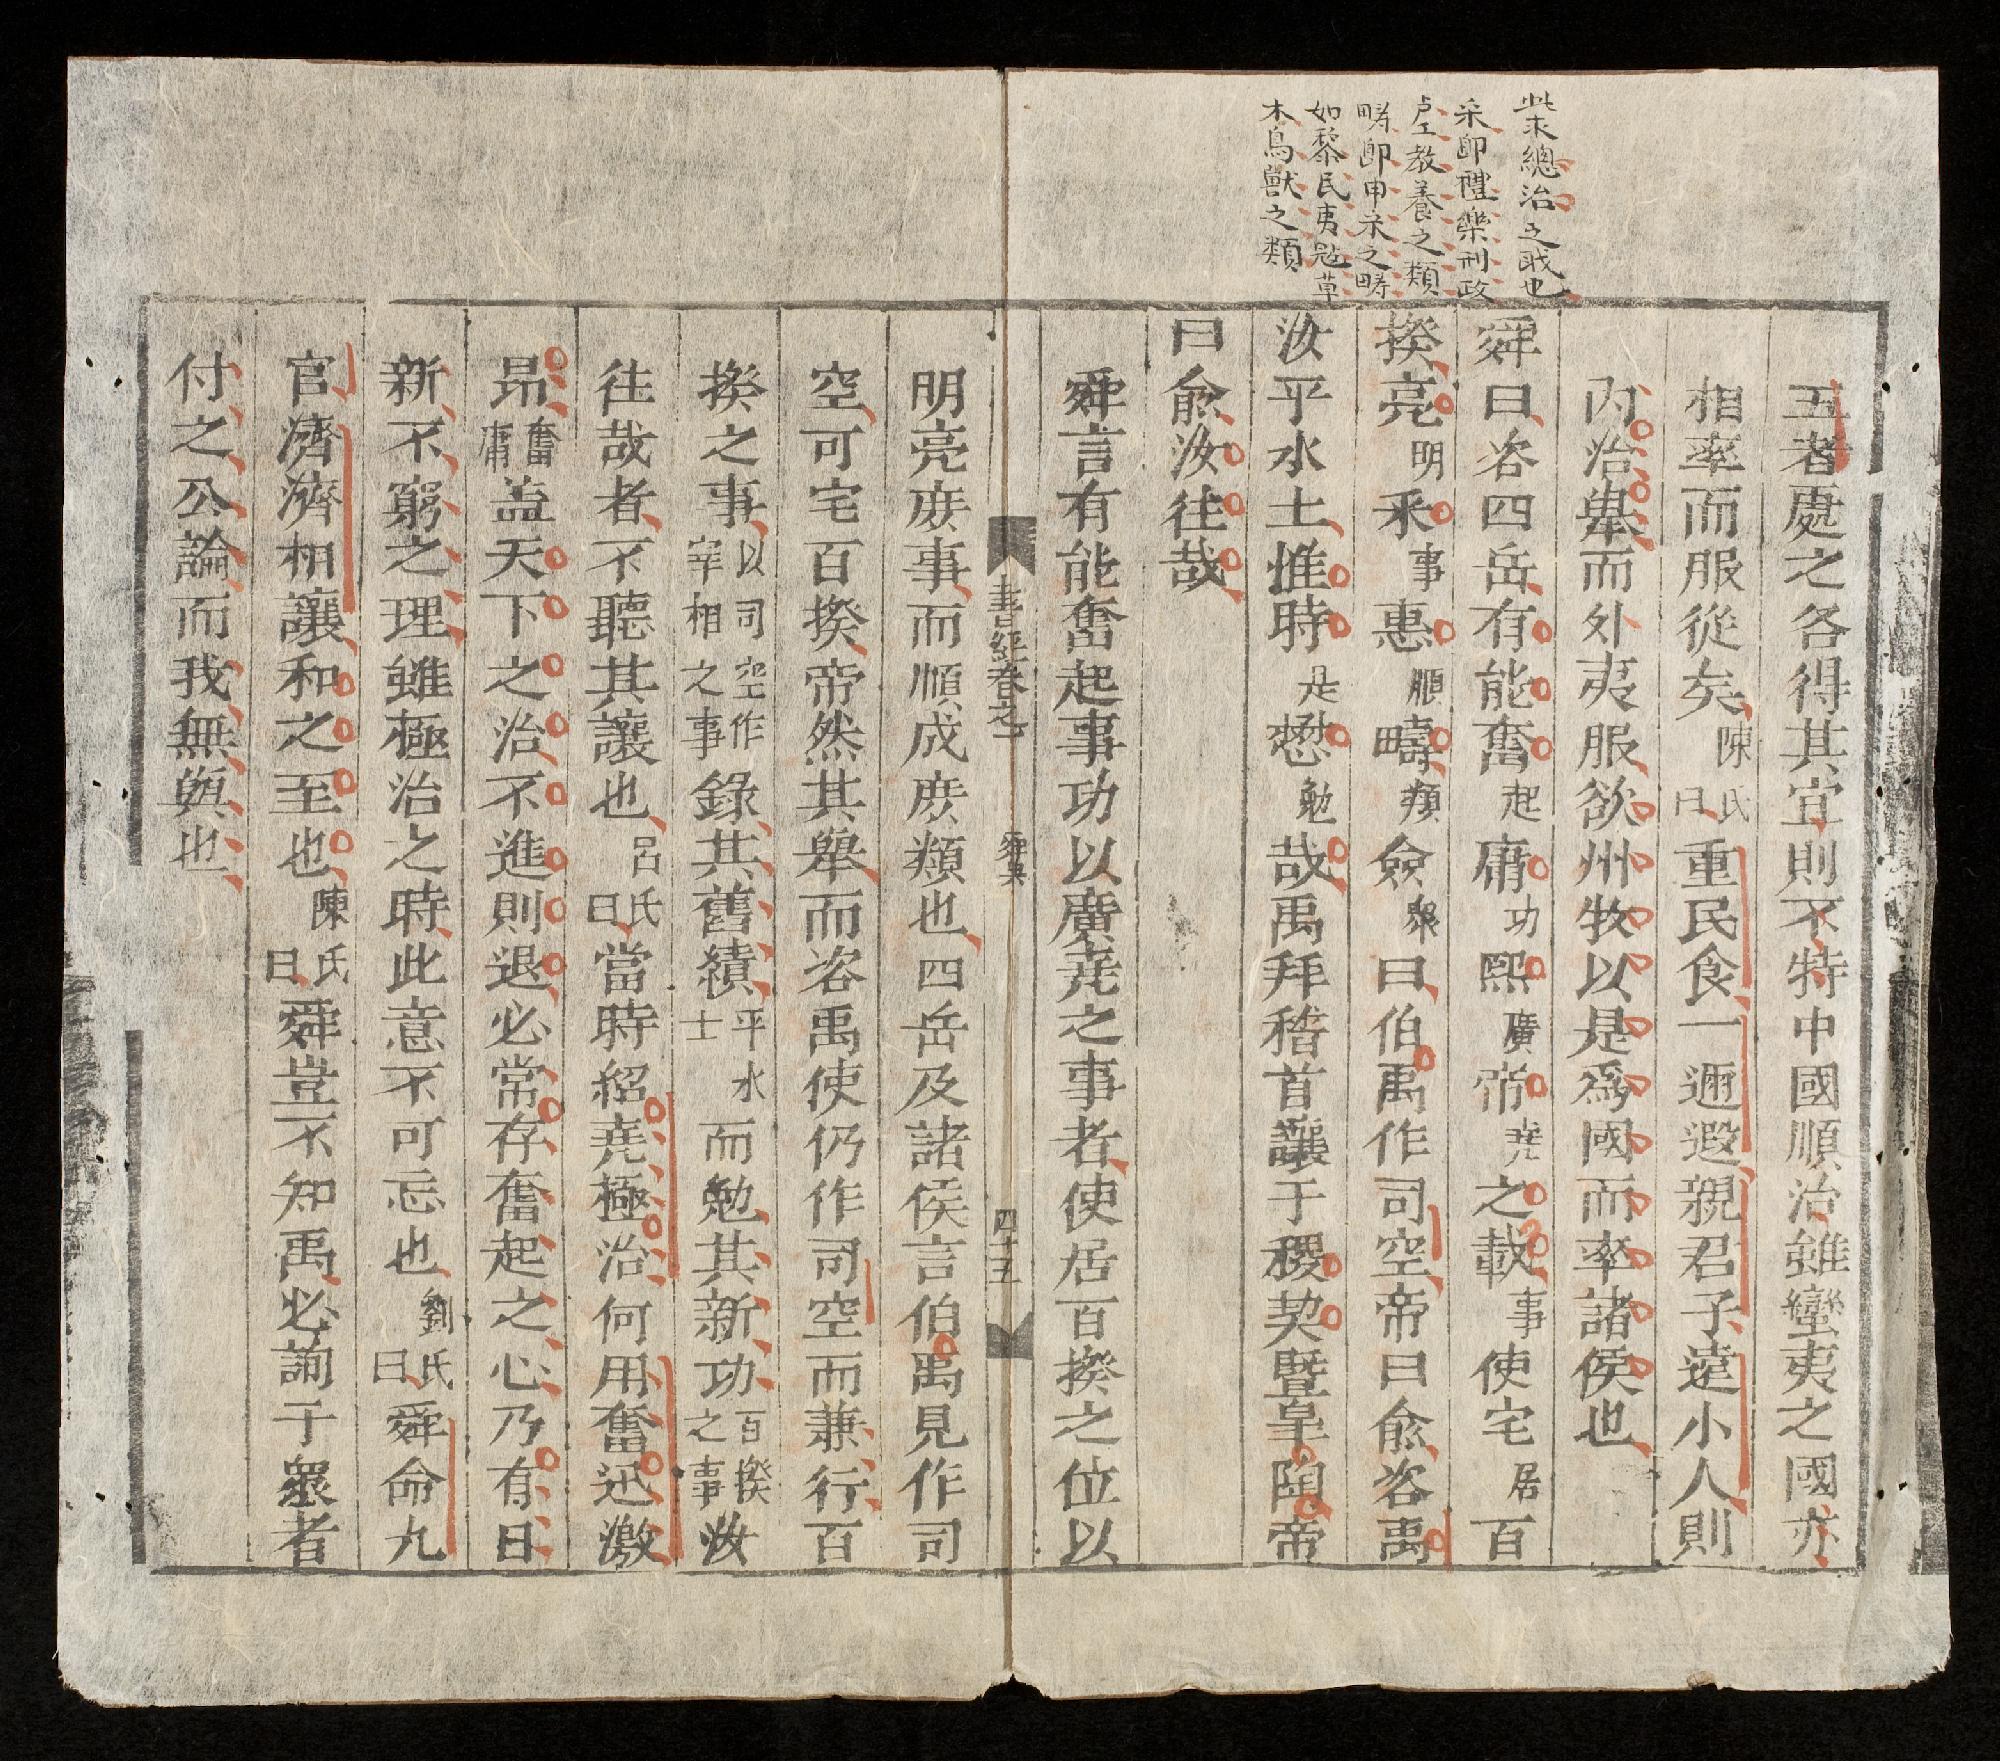 此總治之職也
采即禮樂刑政
工教養之類
疇即申示之疇
如黎民夷冠草
木鳥獸之類
五者處之各得其宜則不特中國順治雖蠻夷之國亦
相率而服從矣陳氏曰重民食一邇遐親君子遠小人則
內治舉而外夷服欲州牧以是為國而率諸侯也
舜曰咨四岳有能奮起庸功熙廣帝堯之載事使宅居百
揆亮明采事惠順疇類僉衆曰伯禹作司空帝曰俞咨禹
汝平水土惟時是懋勉哉禹拜稽首讓于稷契暨皋陶帝
曰俞汝往哉
舜言有能奮起事功以廣堯之事者使居百揆之位以
書經卷之一 舜典 四十五
明亮庶事而順成庶類也四岳及諸侯言伯禹見作司
空可宅百揆帝然其舉而咨禹使仍作司空而兼行百
揆之事以司空作宰相之事錄其舊績平水士而勉其新功百揆之事汝
往哉者不聽其讓也呂氏曰當時紹堯極治何用奮迅激
昂奮庸盖天下之治不進則退必常存奮起之心乃有日
新不窮之理雖極治之時此意不可忘也劉氏曰舜命九
官濟濟相讓和之至也陳氏曰舜豈不知禹必詢于衆者
付之公論而我無與也